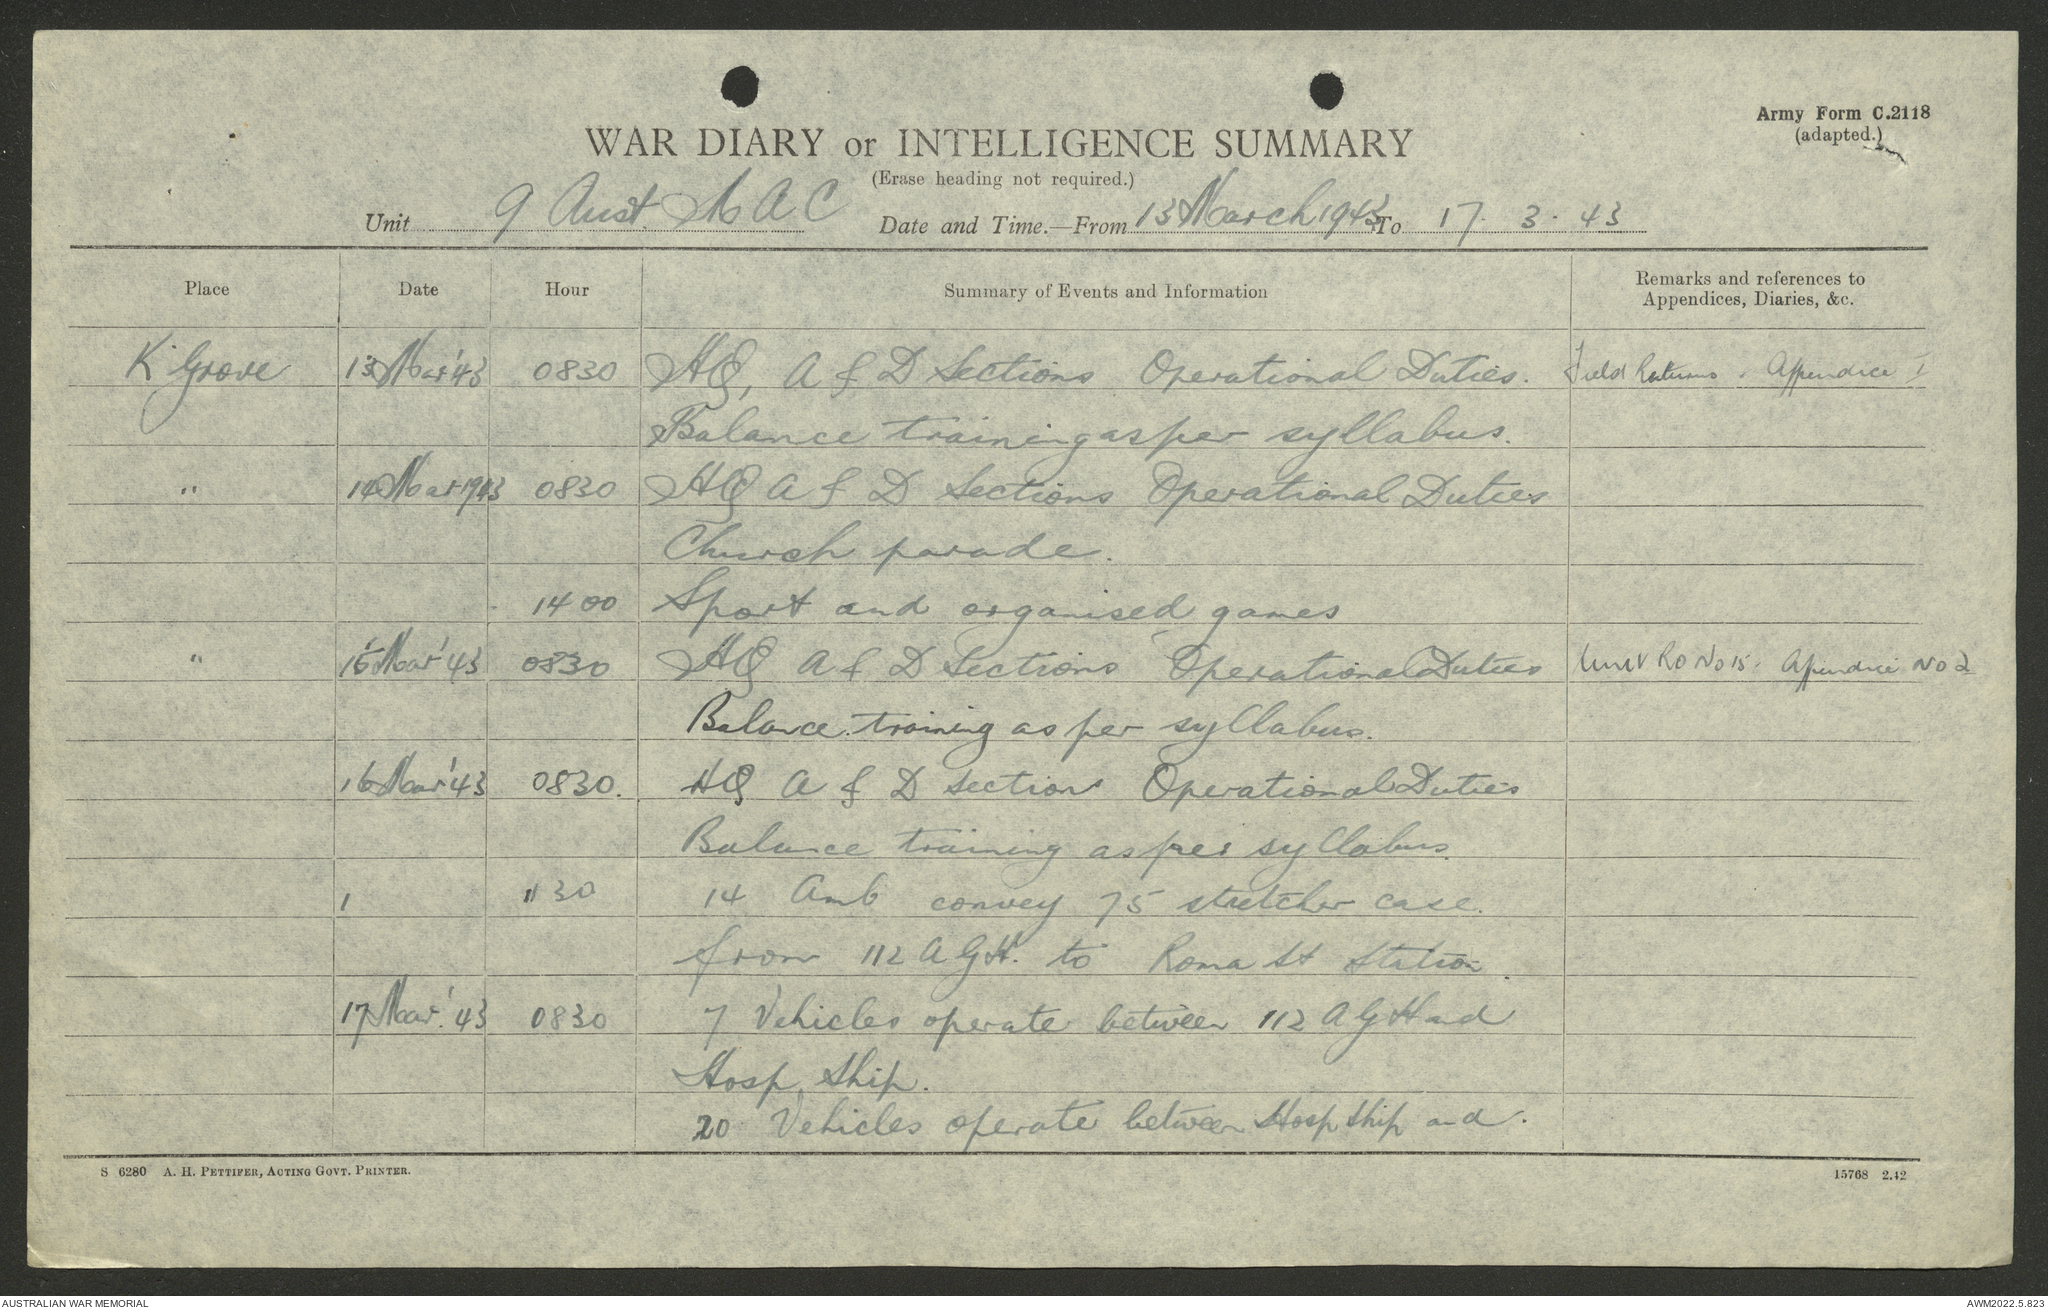 Army Form C.2118
(adapted.)
WAR DIARY or INTELLIGENCE SUMMARY
(Erase heading not required.)
Unit 9 Aust M A C Date and Time.—From 13 March 1943 To 17. 3. 43
Place Date Hour Summary of Events and Information Remarks and references to Appendices, Diaries, &c.
K Grove 13 Mar '43 0830 HQ, A & D Sections Operational Duties. Field Returns. Appendice I
Balance training as per syllabus.
" 14 Mar 1943 0830 HQ A & D Sections Operational Duties
Church parade.
1400 Sport and organised games
" 15 Mar '43 0830 HQ A & D Sections Operational Duties Unit RO No 15. Apendice No 2
Balance training as per syllabus.
16 Mar '43 0830. HQ A & D Section Operational Duties
Balance training as per syllabus.
1130 14 Amb convey 75 stretcher case.
from 112 A G H. to Roma St Station.
17 Mar '43 0830 7 Vehicles operate between 112 A G H and
Hosp Ship.
20 Vehicles operate between Hosp Ship and.
S 6280 A. H. PETTIFER, ACTING GOVT. PRINTER.
15768 2.42
AUSTRALIAN WAR MEMORIAL
AWM2022.5.823